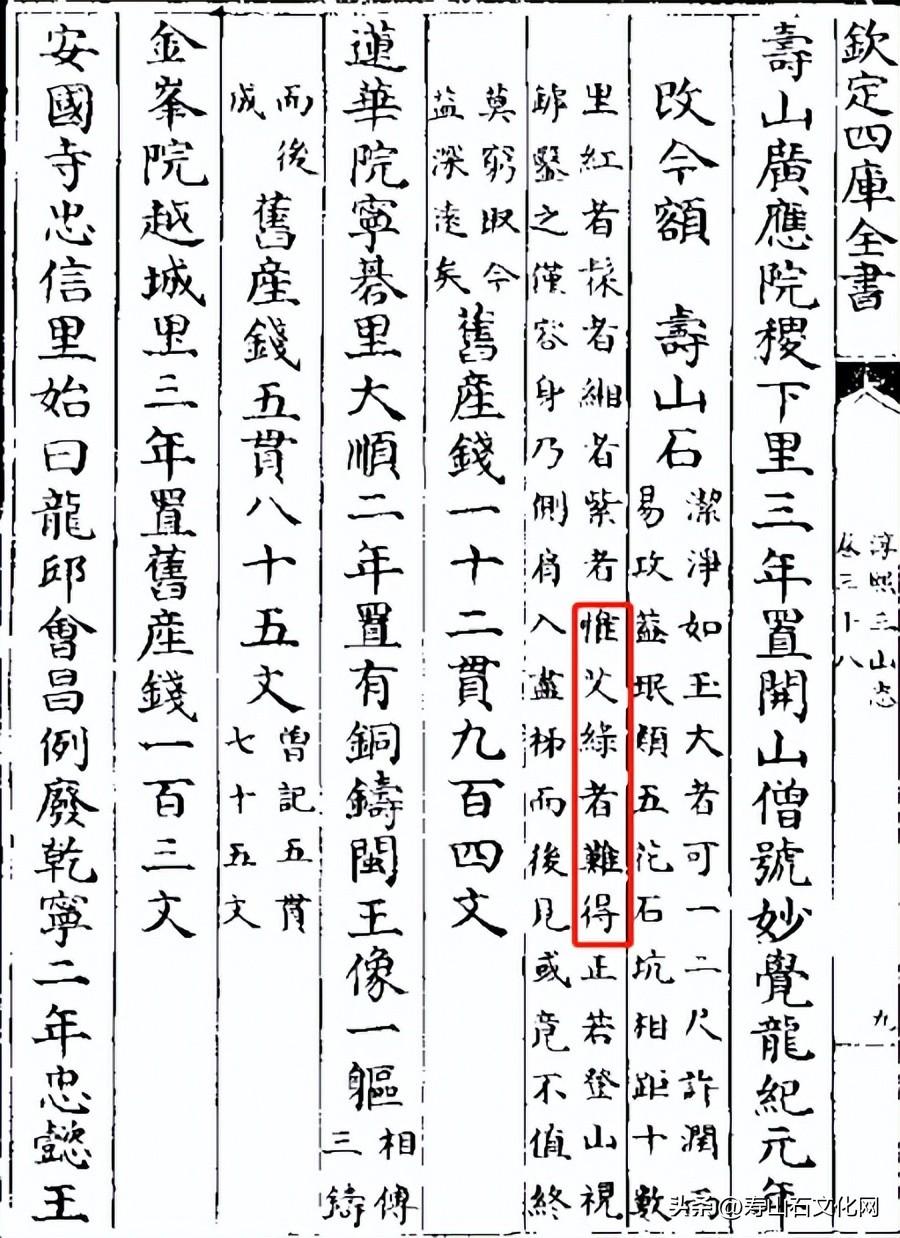 欽定四庫全書
淳熙三山志
卷三十八
九
壽山廣應院稷下里三年置開山僧號妙覺龍紀元年
改今額　壽山石
潔淨如玉大者可一二尺許潤而
易攻蓋珉類五花石坑相距十數
里紅者髹者緗者紫者惟艾綠者難得正若登山視
罅鑿之僅容身乃側肩入盡梯而後見或竟不值終
莫窮取今
益深遠矣
舊產錢一十二貫九百四文
蓮華院寧棊里大順二年置有銅鑄閩王像一軀
相傳
三鑄
而後
成
舊產錢五貫八十五文
曾記五貫
七十五文
金峯院越城里三年置舊產錢一百三文
安國寺忠信里始曰龍邱會昌例廢乾寧二年忠懿王
头条@寿山石文化网